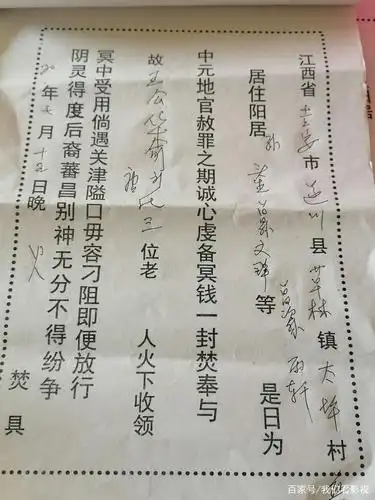 江西省吉安市遂川县草林镇大坪村
居住阳居 文 等 是日为
雨轩
中元地官赦罪之期诚心虔备冥钱一封焚奉与
故 公 三位老 人火下收领
冥中受用倘遇关津隘口毋容刁阻即便放行
阴灵得度后裔蕃昌别神无分不得纷争
年 月十五日晚 焚具
百家号/我们看影视